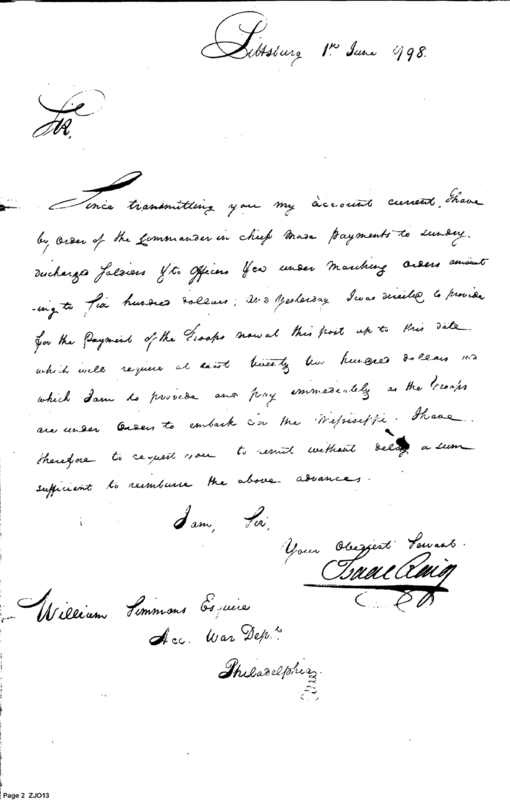 Pittsburg 1st June 1798.
Sir.
Since transmitting you my account current, I have
by order of the Commander in chief made payments to sundry
discharged Soldiers & to Officers &ca under Marching orders amount
-ing to Six hundred dollars; and Yesterday I was directed to provide
for the Payment of the Troops now at this post up to this date
which will require at least twenty two hundred dollars
which I am to provide and pay immediately as the Troops
are under Orders to embark for the Missisippi. I have
therefore to request you to remit without delay a sum
sufficient to reimburse the above advances.
I am, Sir,
Your Obedient Servant.
Isaac Craig
William Simmons Esquire
Acc. War Dept.
Philadelphia
Page 2 ZJO13